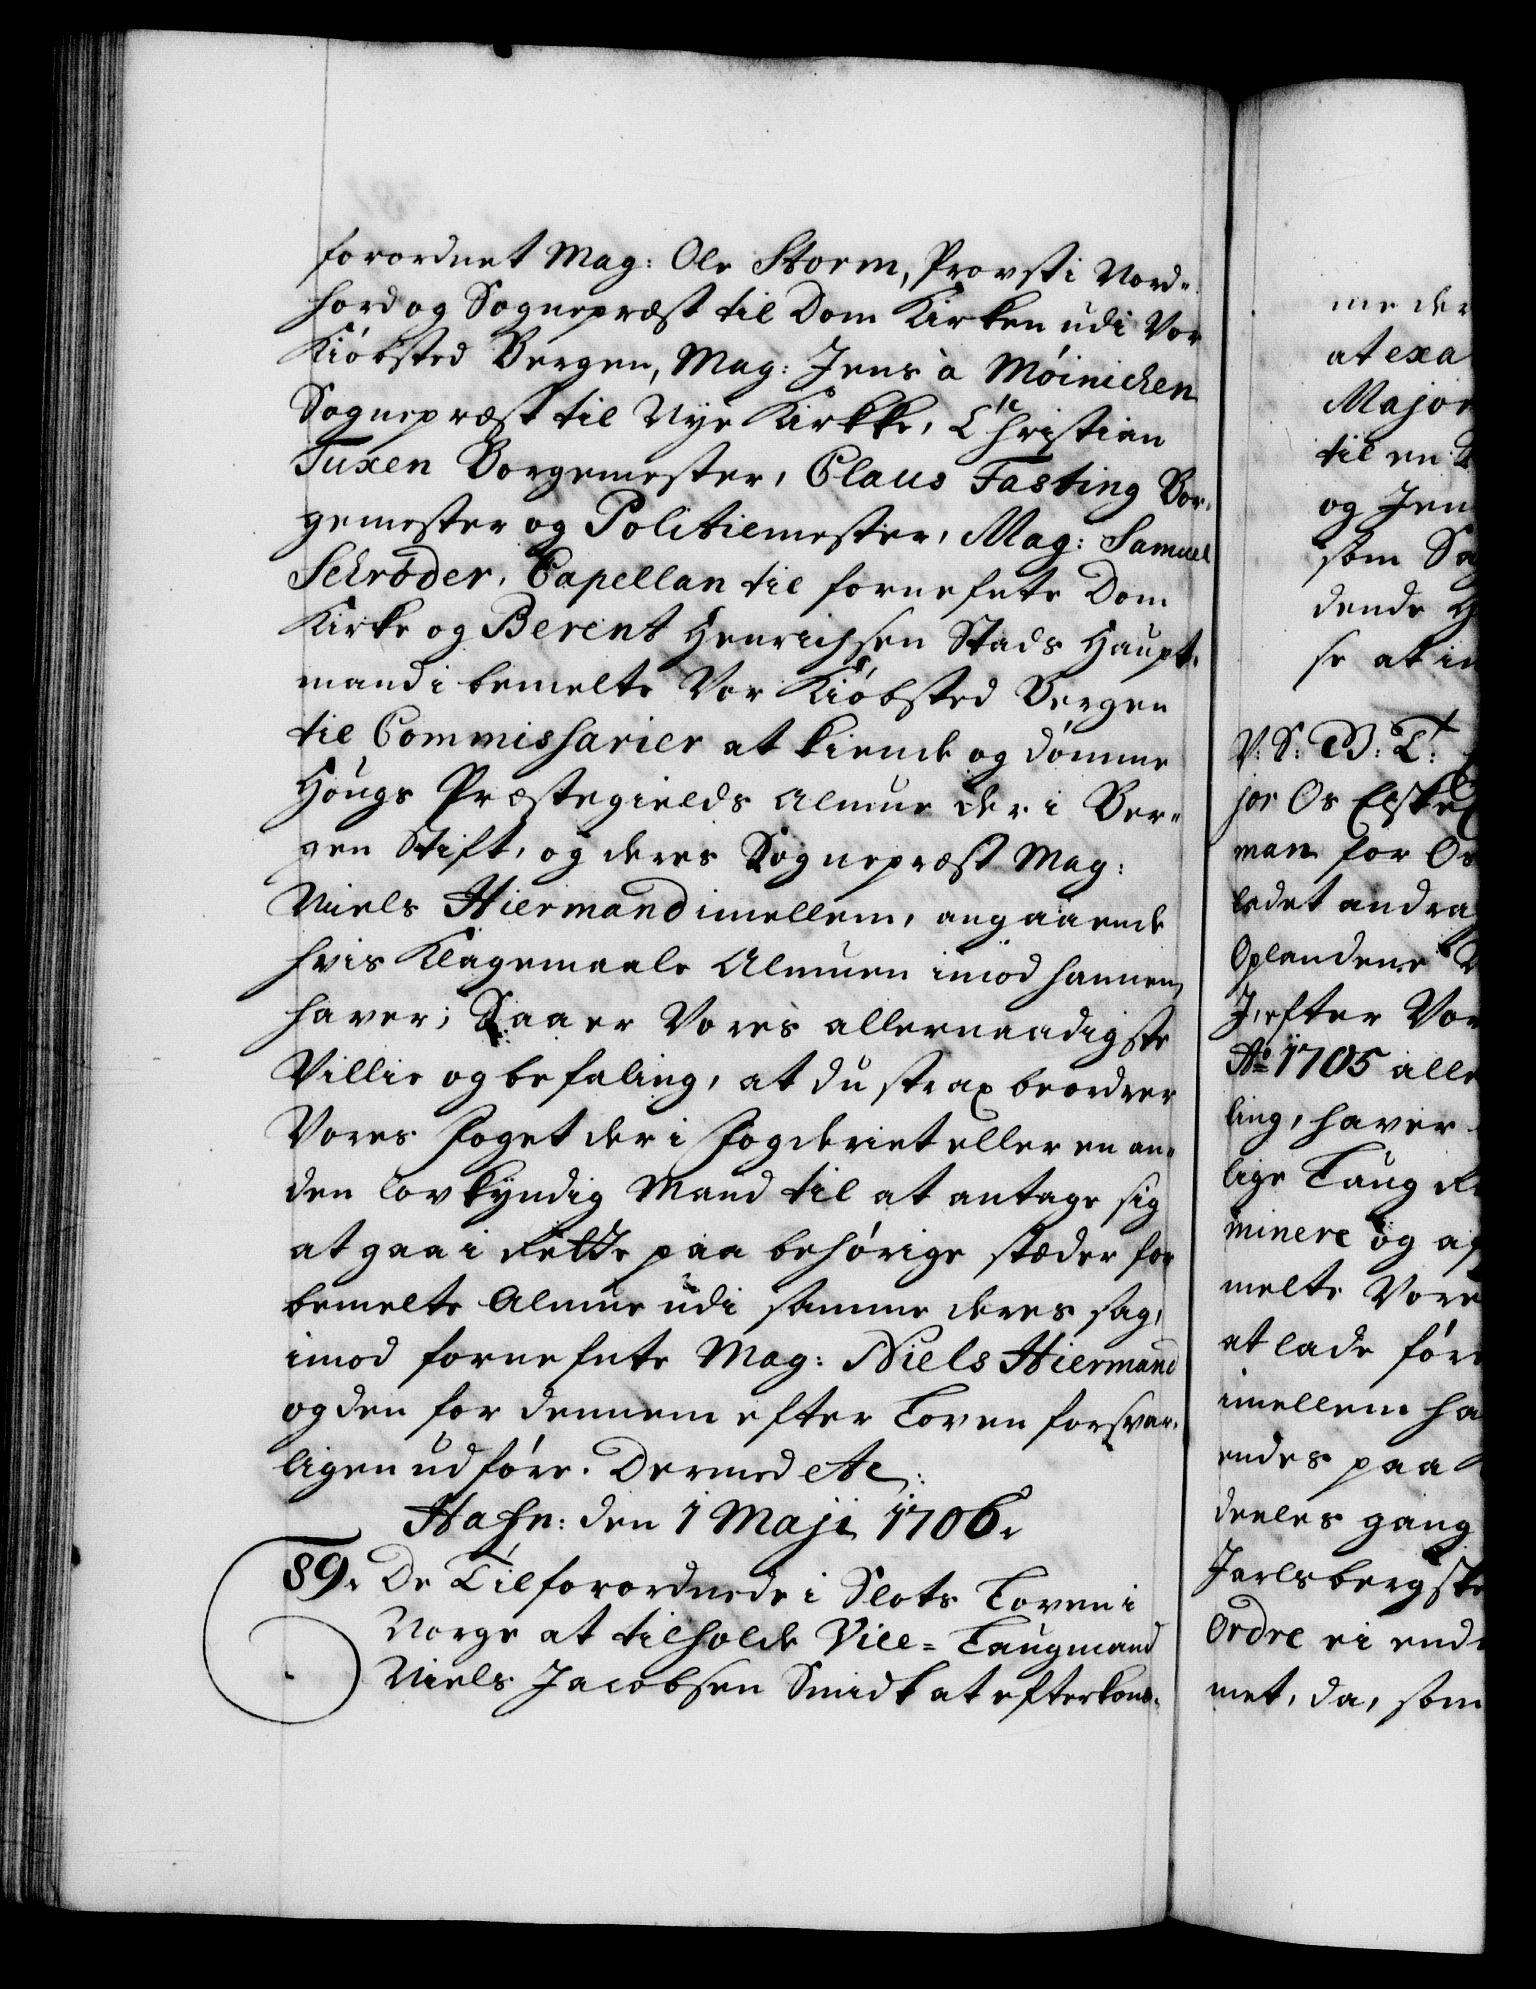 forordnet Mag: Ole Storm, Provst i Nord-
hord og Sognepræst til Dom Kirken udi Vor
Kiöbsted Bergen, Mag: Jens à Möinichen
Sognepræst til Nye Kirkke, Christian
Tuxen Borgemester, Claus Fasting Bor-
gemester og Politiemester, Mag: Samuel
Schröder, Capellan til fornefnte Dom
Kirke og Berent Henrichsen Stads Haupt-
mand i bemelte Vor Kiöbsted Bergen
til Commissarier at kiende og dömme
Hougs Præstegields Almue der i Ber-
gen Stift, og deres Sognepræst Mag:
Niels Hiermand imellem, angaaende
hvis Klagemaale Almuen imod hannem
haver; Saa er Vores allernaadigste
Villie og befaling, at du strax beordrer
Vores Foget der i Fogderiet eller en an-
den lovkyndig Mand til at antage sig
at gaa i Rette paa behörige stæder for
bemelte Almue udi samme deres sag,
imod fornefnte Mag: Niels Hiermand
og den for dennem efter Loven forsvar-
ligen udföre. Dermed etc:
Hafn: den 1 Maji 1706.
89. De Tilforordnede i Slots Loven i
Norge at tilholde Vice-Laugmand
Niels Jacobsen Smidt at efterkom-
me der
at exa
Major
til en
og Jen
som Sa
dende
se at in
V: S: B: T:
jor Os Elske
man for Os
ladet andra
Oplandene
J, efter Vor
Ao 1705 alle
ling, haver
lige Laug
minere og af
melte Vore
at lade före
imellem ha
endes paa
deeles gang
Jarlsbergske
Ordre ei end
met, da, som